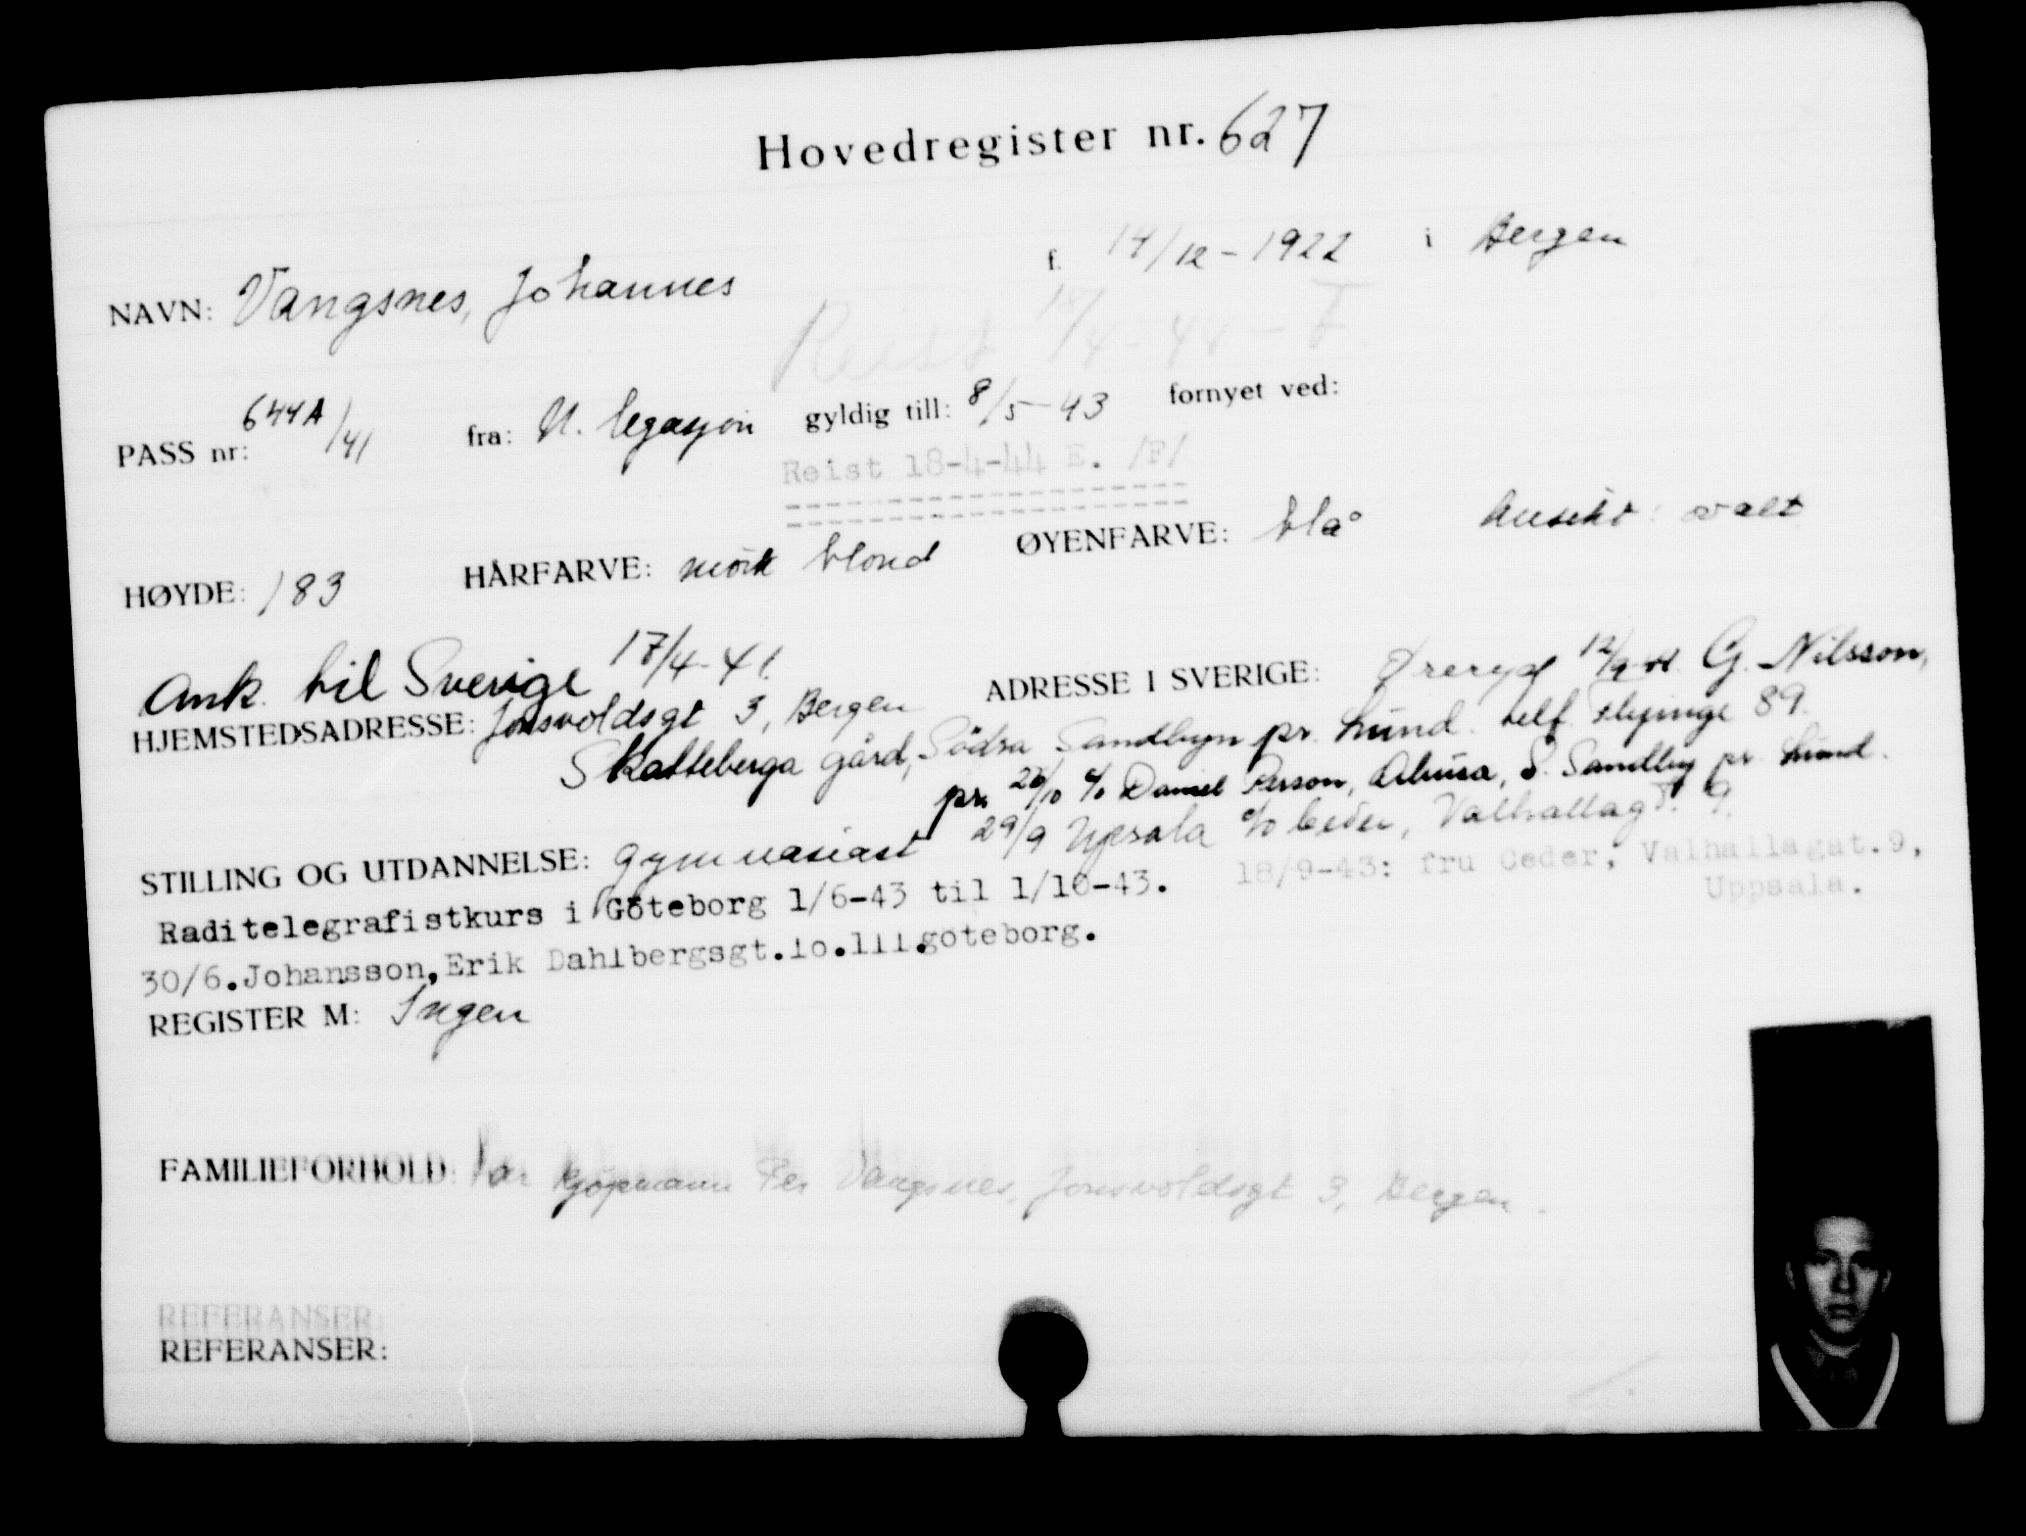 Hovedregister nr. 627
NAVN: Vangsnes, Johannes f. 14/12-1922 i Bergen
Reist 18/4-44-F
PASS nr: 644A/41 fra: N. legasjon gyldig till: 8/5-43 fornyet ved:
Reist 18-4-44 E. /F/
HØYDE: 183 HÅRFARVE: mörk blond ØYENFARVE: blå Ansikt: ovalt
Ank. til Sverige 17/4-41.
HJEMSTEDSADRESSE: Jonsvoldsgt 3, Bergen ADRESSE I SVERIGE: Øreryd 12/9-41. G. Nilsson,
Skatteberga gård, Södra Sandbyn pr. Lund. telf. Flyinge 89.
pr. 26/10 c/o Daniel Person, S. Sandby pr. Lund.
29/9 Upsala c/o Ceder, Valhallagt. 9.
STILLING OG UTDANNELSE: gymnasiast 18/9-43: fru Ceder, Valhallagat.9,
Uppsala.
Raditelegrafistkurs i Göteborg 1/6-43 til 1/10-43.
30/6.Johansson,Erik Dahlbergsgt.10.111.göteborg.
REGISTER M: Ingen
FAMILIEFORHOLD: Far kjøpmann Per Vangsnes, Jonsvoldsgt 3, Bergen.
REFERANSER:
REFERANSER: